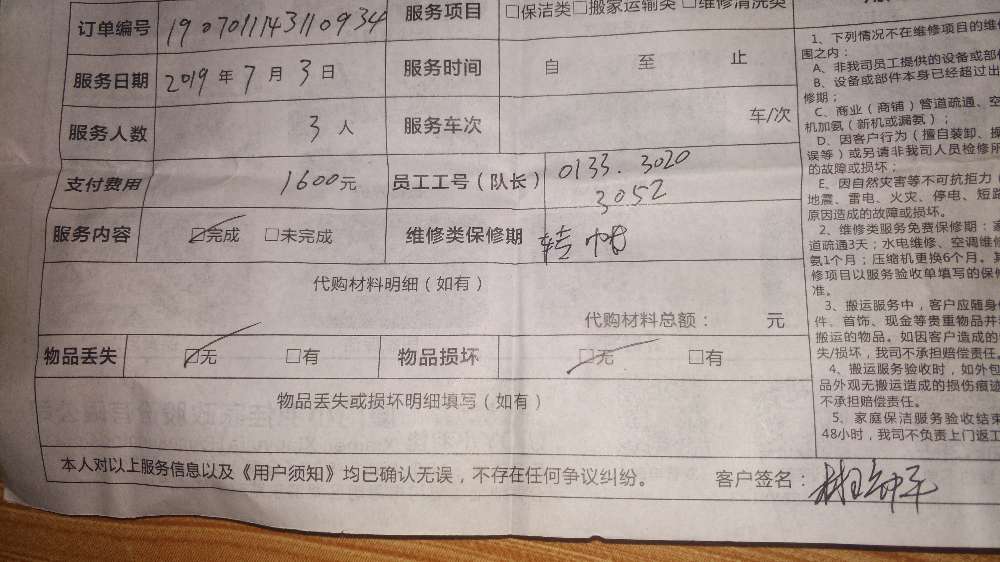 订单编号 190701143110934 服务项目 □保洁类□搬家运输类 □维修清洗类
服务日期 2019年7月3日 服务时间 自 至 止
服务人数 3人 服务车次 车/次
支付费用 1600元 员工工号（队长） 0133.3020
3052
服务内容 ☑完成 □未完成 维修类保修期 转帐
代购材料明细（如有）
代购材料总额： 元
物品丢失 ☑无 □有 物品损坏 ☑无 □有
物品丢失或损坏明细填写（如有）
本人对以上服务信息以及《用户须知》均已确认无误，不存在任何争议纠纷。 客户签名：
1、下列情况不在维修项目的维
围之内：
A、非我司员工提供的设备或部
B、设备或部件本身已经超过出
修期；
C、商业（商铺）管道疏通、空
机加氨（新机或漏氨）；
D、因客户行为（擅自装卸、
误等）或另请非我司人员检修所
的故障或损坏；
E、因自然灾害等不可抗拒力（
地震、雷电、火灾、停电、短路
原因造成的故障或损坏。
2、维修类服务免费保修期：
道疏通3天；水电维修、空调维修
氨1个月；压缩机更换6个月。其
修项目以服务验收单填写的保修
准。
3、搬运服务中，客户应随身
件、首饰、现金等贵重物品并
搬运的物品。如因客户造成的
失/损坏，我司不承担赔偿责任。
4、搬运服务验收时，如外包
品外观无搬运造成的损伤痕迹
不承担赔偿责任。
5、家庭保洁服务验收结束
48小时，我司不负责上门返工